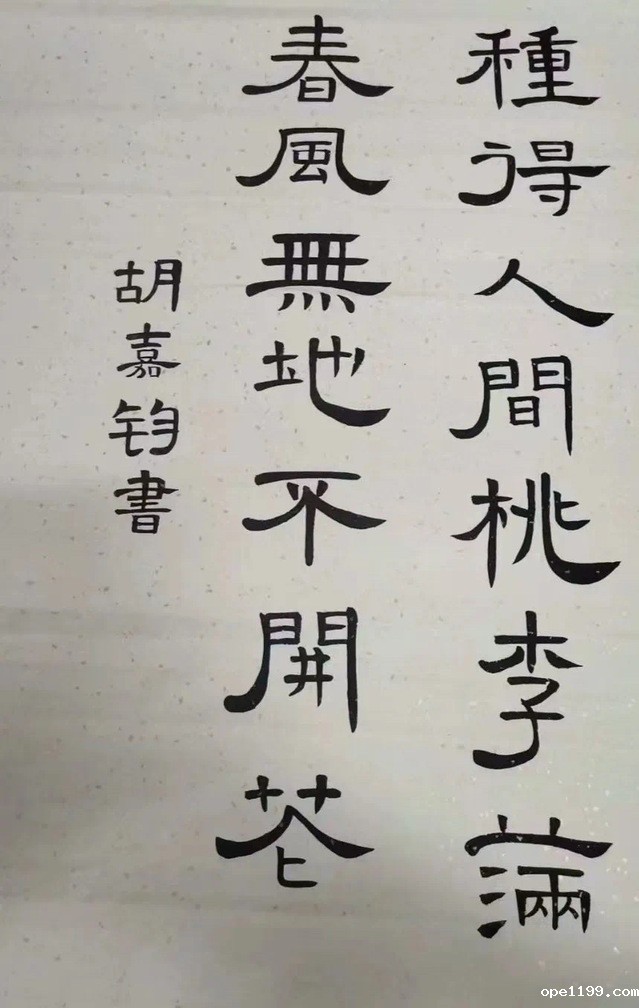 種得人間桃李滿
春風無地不開花
胡嘉鈞書
ope1199.com